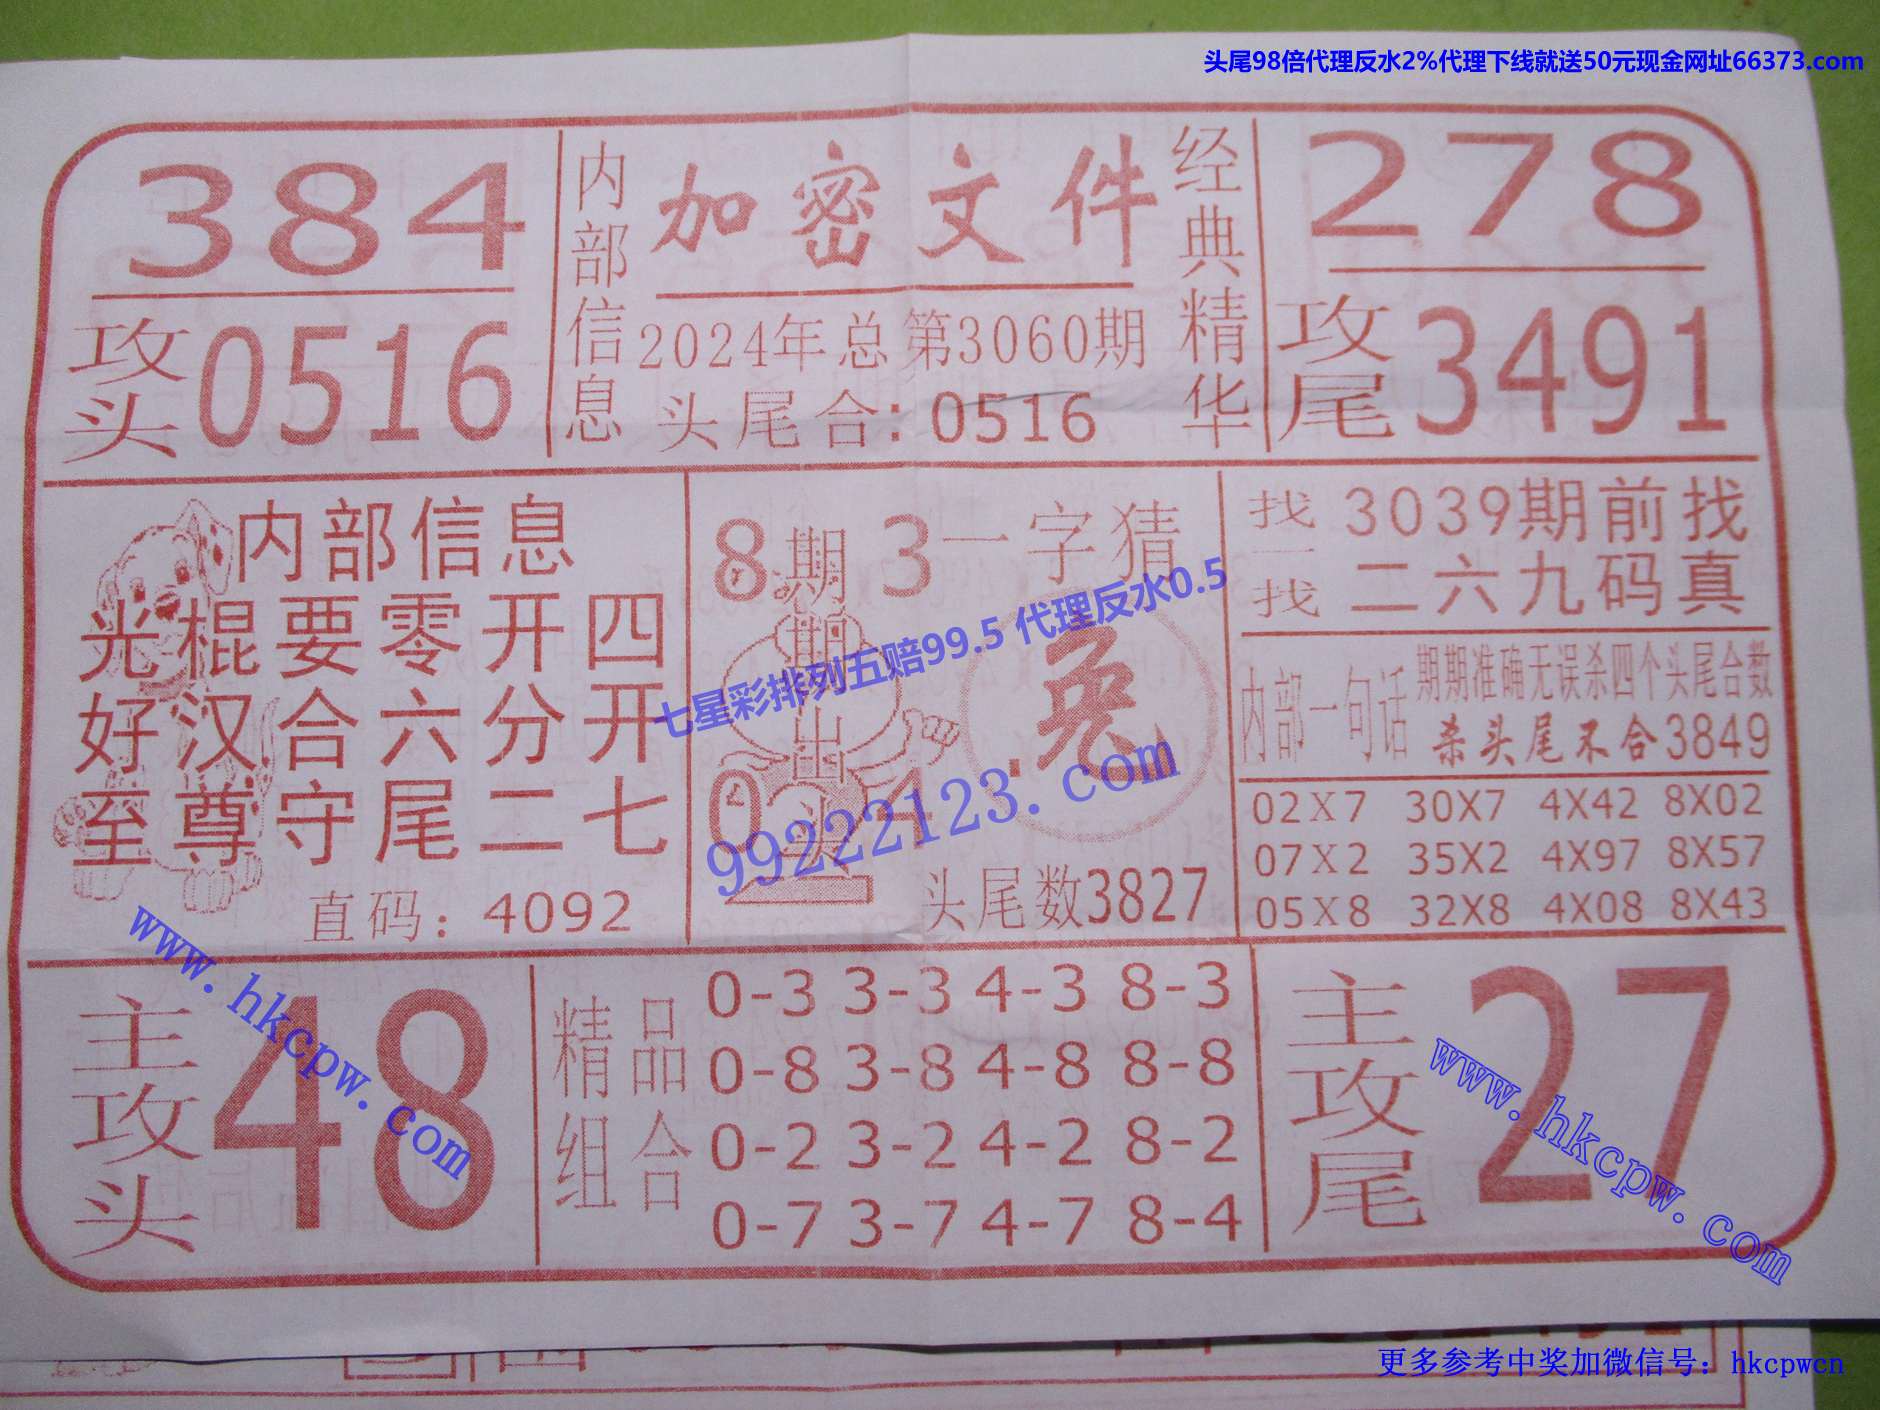 头尾98倍代理反水2%代理下线就送50元现金网址66373.com
384
攻头
0516
内部信息
加密文件
2024年总第3060期
头尾合：0516
经典精华
278
攻尾
3491
内部信息
光棍要零开四
好汉合六分开
至尊守尾二七
直码：4092
8 3
0 4
期期出头
一字猜
兔
头尾数3827
七星彩排列五赔99.5 代理反水0.5
99222123.com
找一找
3039期前找
二六九码真
内部一句话
期期准确无误杀四个头尾合数
杀头尾不合3849
02X7 30X7 4X42 8X02
07X2 35X2 4X97 8X57
05X8 32X8 4X08 8X43
主攻头
48
www.hkcpw.com
精品组合
0-3 3-3 4-3 8-3
0-8 3-8 4-8 8-8
0-2 3-2 4-2 8-2
0-7 3-7 4-7 8-4
主攻尾
27
www.hkcpw.com
更多参考中奖加微信号：hkcpwcn